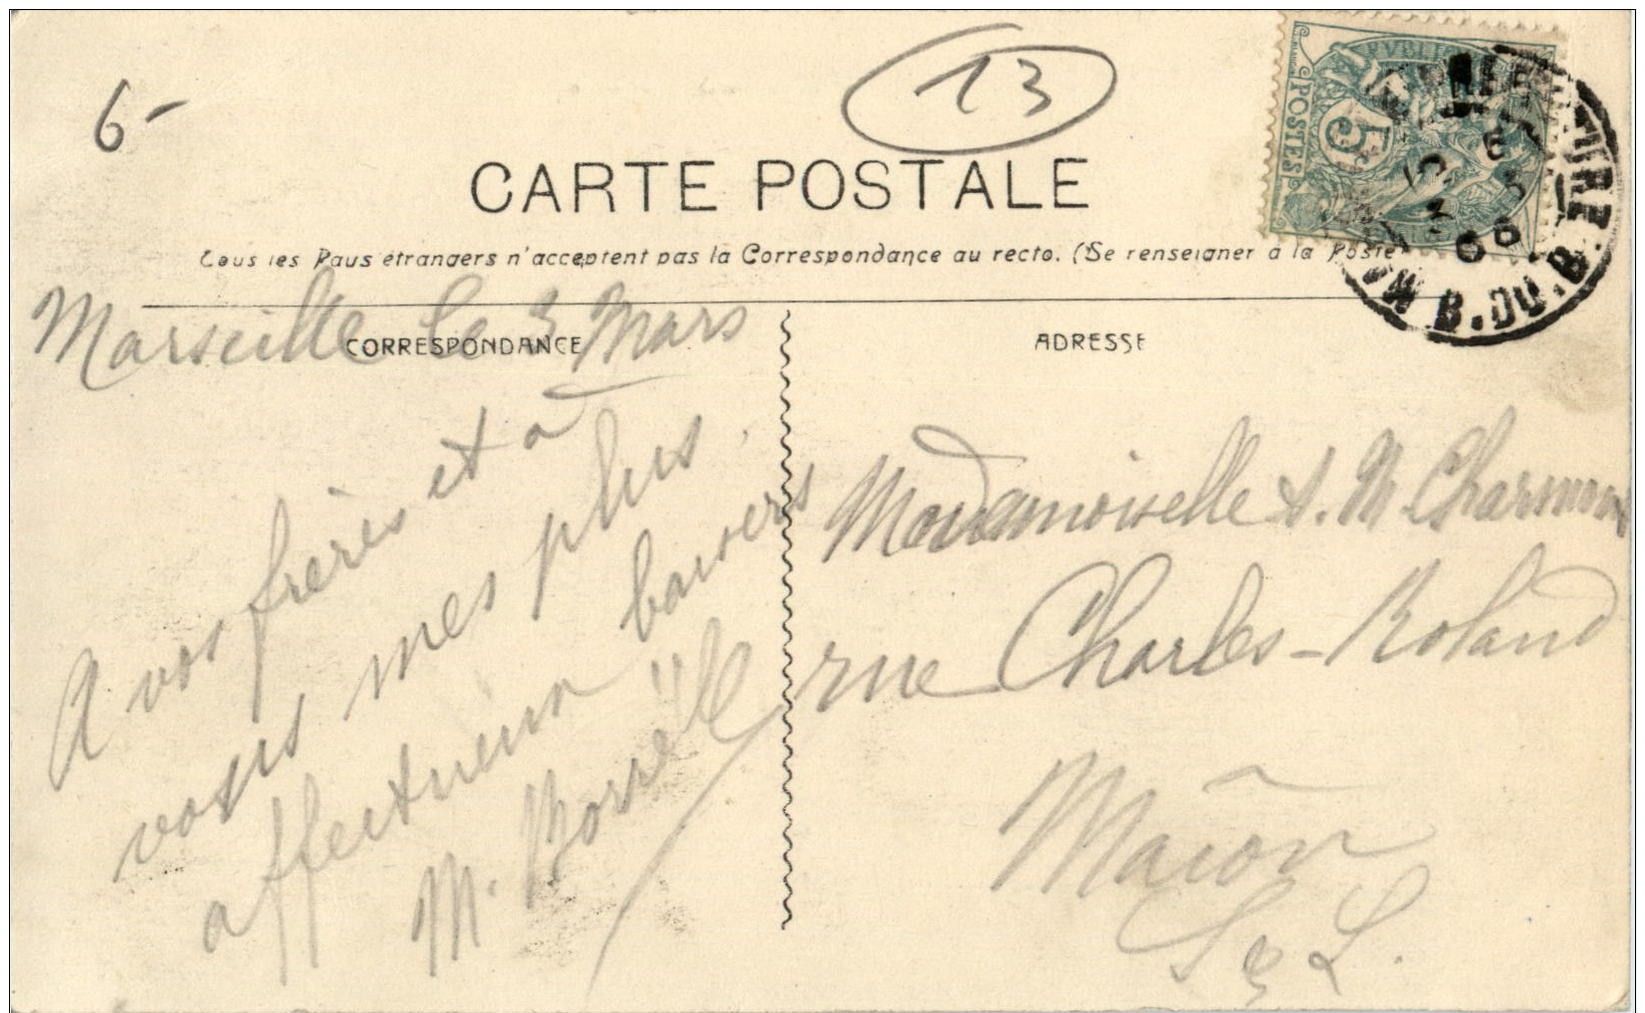 6-
13
CARTE POSTALE
Tous les Pays étrangers n'acceptent pas la Correspondance au recto. (Se renseigner à la Poste
CORRESPONDANCE
ADRESSE
POSTES
5c
B. DU. B.
Marseille le 3 Mars
A vos frères et à
vous mes plus
affectueux baisers
M. Borrell
Mademoiselle A. M. Charmon
rue Charles-Roland
Mâcon
S & L.